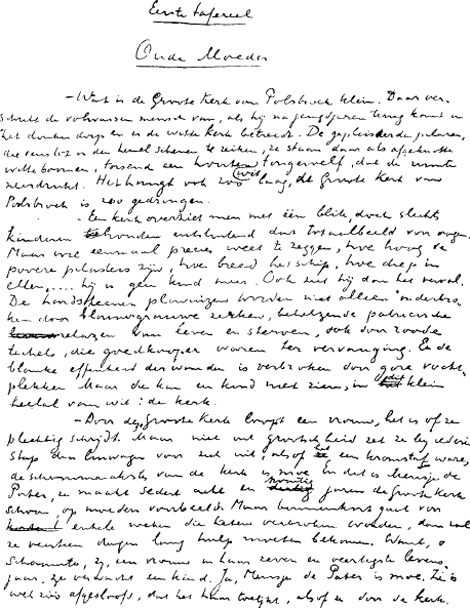 Eerste tafereel
Oude Moeder
- Wat is de Groote Kerk van Polsbroek klein. Daar ver-
schrikt de volwassen mensch van, als hij na jaren terug komt in
het donkere dorp en in de witte kerk betreedt. De gepleisterde pilaren,
die eens tot in den hemel schenen te reiken, ze staan daar als afgeknotte
witte boomen, torsend een houten tongewelf, dat de ruimte
neerdrukt. Het hangt ook zoo laag, de Groote Kerk van
Polsbroek is zoo gedrongen.
- Een kerk overziet men met één blik, doch slechts
kinderen
Maar wie eenmaal precies weet te zeggen, hoe hoog de
povere pilasters zijn, hoe breed het schip, hoe diep in
ellen, .... hij is geen kind meer. Ook ziet hij dan het verval.
De hardsteenen plavuizen worden niet alleen onderbro-
ken door blauwgrauwe zerken, behelzende patricische
relazen van leven en sterven, ook door roode
tichels, die goedkooper waren ter vervanging. En de
blanke effenheid der wanden is verbroken door gore vocht-
plekken. Maar die kan een kind niet zien, in klein
heelal van wit: de kerk.
- Door de Groote Kerk loopt een vrouw, het is of ze
plechtig schrijdt. Maar niet uit grootschheid zet ze bij iederen
stap den linnen voor zich uit, alsof het een kromstaf ware,
de schoonmaakster van de kerk is moe. En dat is Mensje de
Pater, ze maakt sedert acht en twintig jaren de Groote Kerk
schoon, op moeders voorbeeld. Maar binnenkort gaat van
enkele weken die keten verbroken worden, dan zal
ze veertien dagen lang hulp moeten bekomen. Want, o
schaamte, zij, een vrouw in haar zeven en veertigste levens-
jaar, ze verwacht een kind. Ja, Mensje de Pater is moe. Ze is
wel zoo afgesloofd, dat het haar toelijkt, alsof er door de kerk